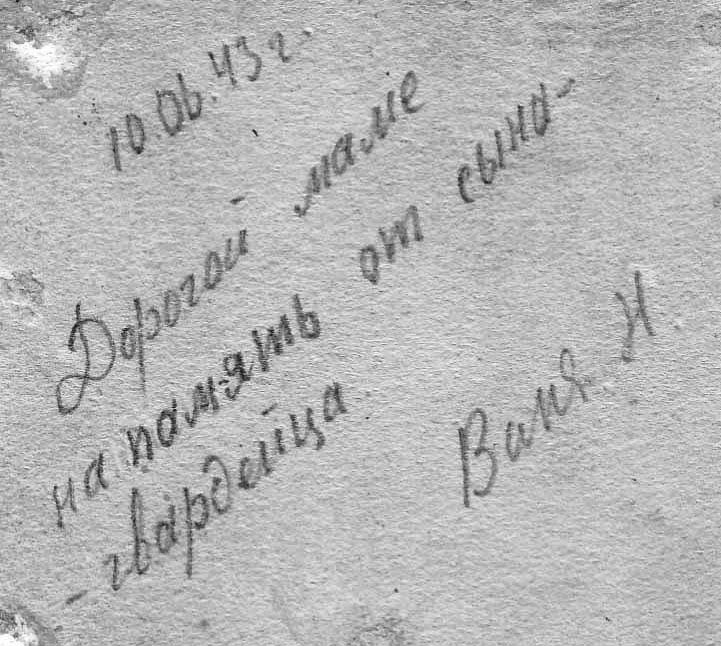 10.06.43г.
Дорогой маме
на память от сына-
-гвардейца
Ваня Н